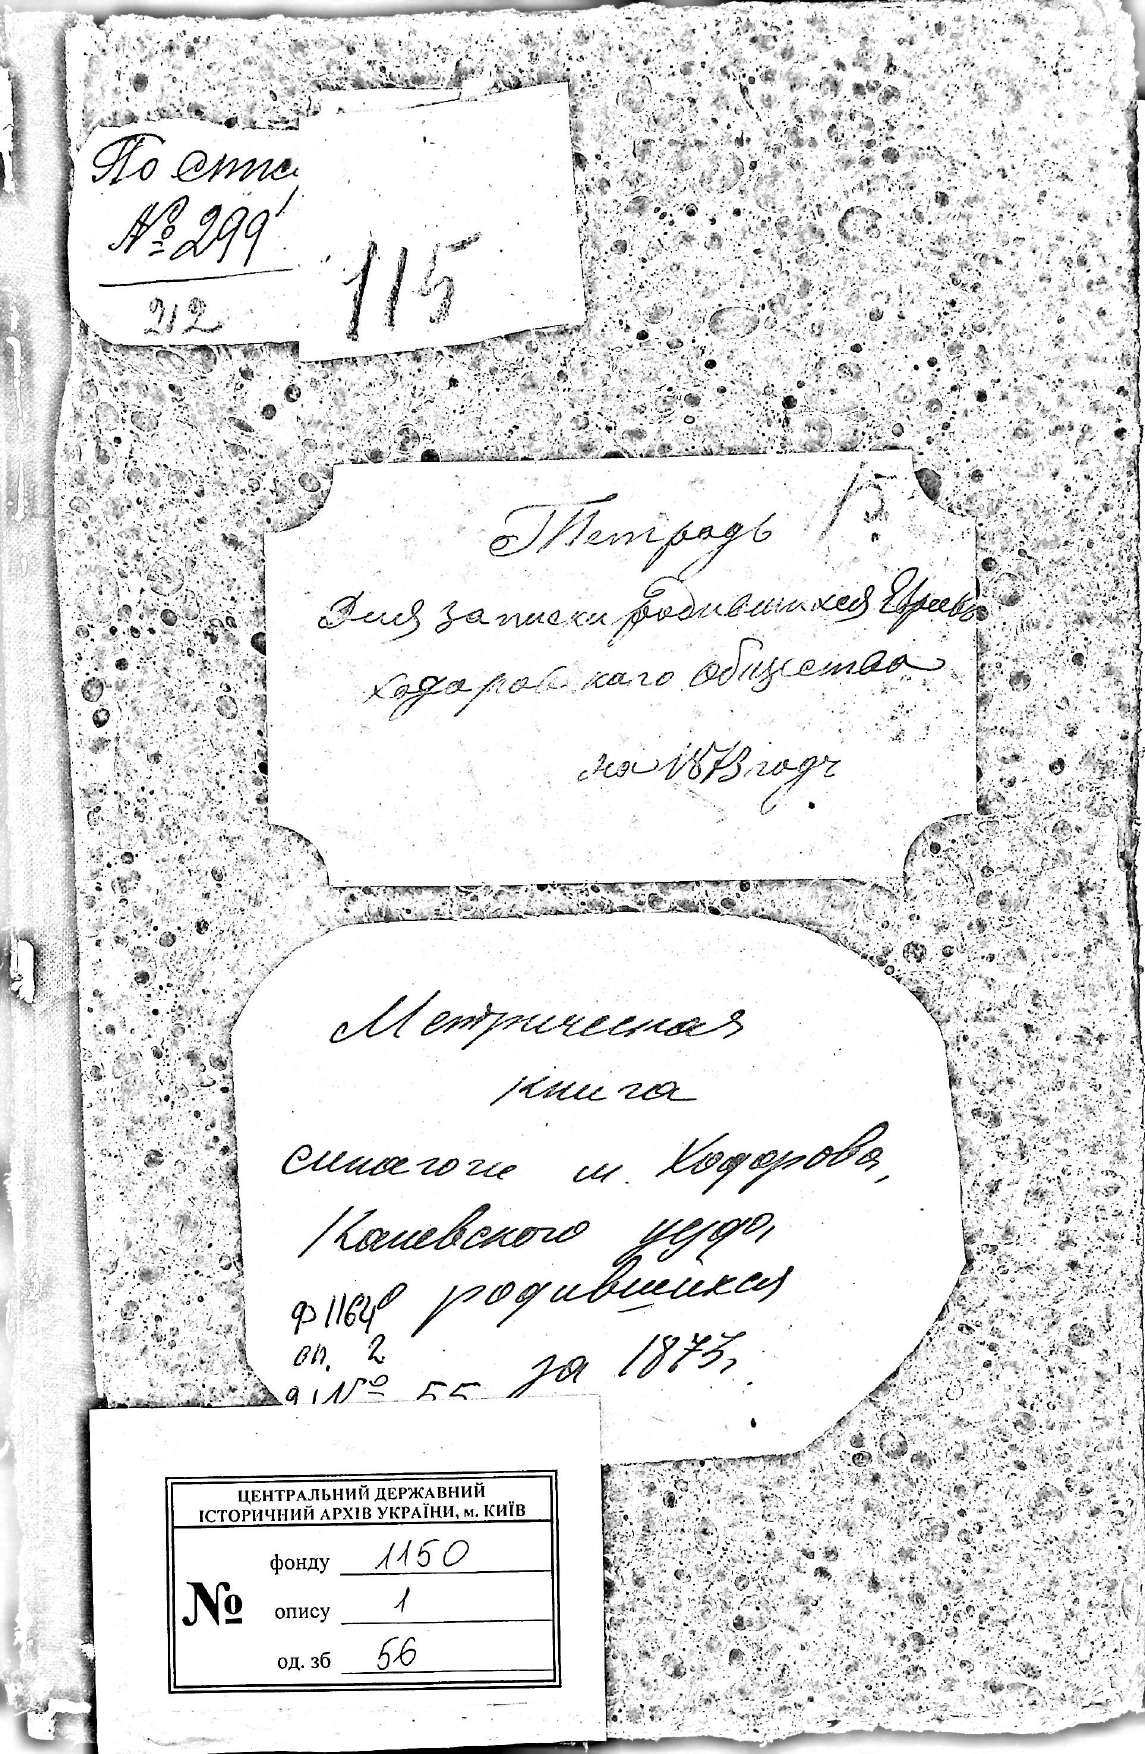 По опис
№ 299
212
115
15
Тетрадь
Для записки родившихся Евреевъ
ходоровскаго общества
на 1873 годъ
Метрическая
книга
синагоги м. Ходорова,
Каневского уезда,
о родившихся
ф 1164
оп. 2
за 1873,
№ 55
ЦЕНТРАЛЬНИЙ ДЕРЖАВНИЙ
ІСТОРИЧНИЙ АРХІВ УКРАЇНИ, м. КИЇВ
№
фонду 1150
опису 1
од. зб 56